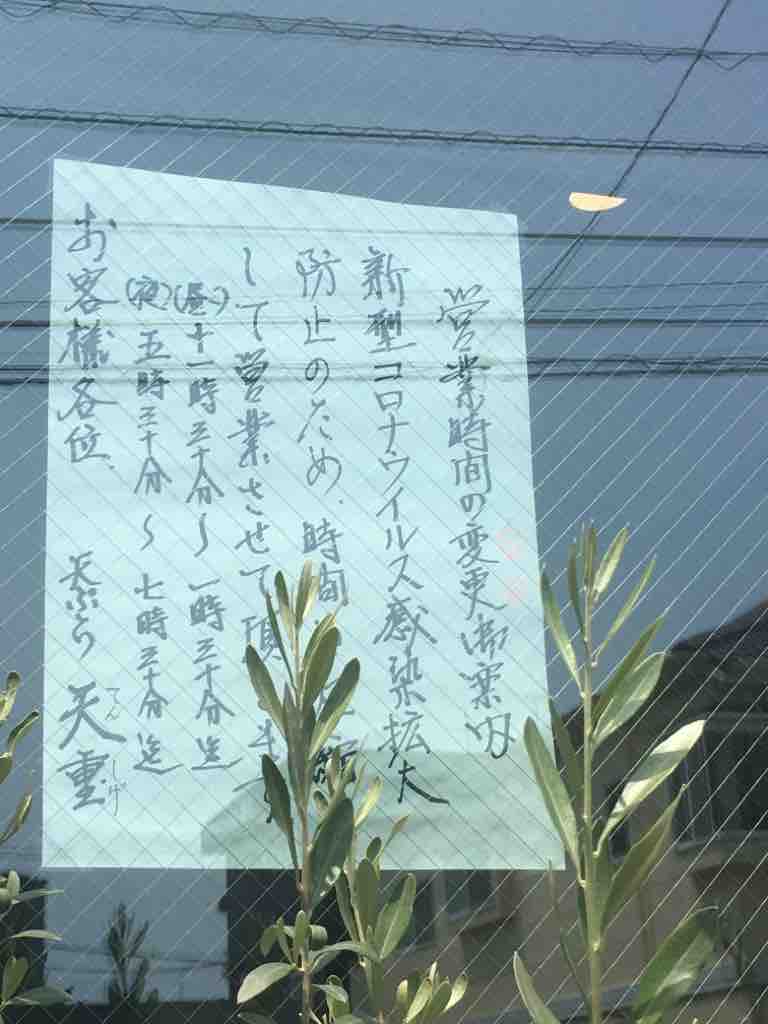 営業時間の変更御案内
新型コロナウイルス感染拡大
防止のため、時間短縮
して営業させて頂
(昼)十一時三十分〜一時三十分迄
(夜)五時三十分〜七時三十分迄
お客様各位、
天ぷら 天重
てん しげ